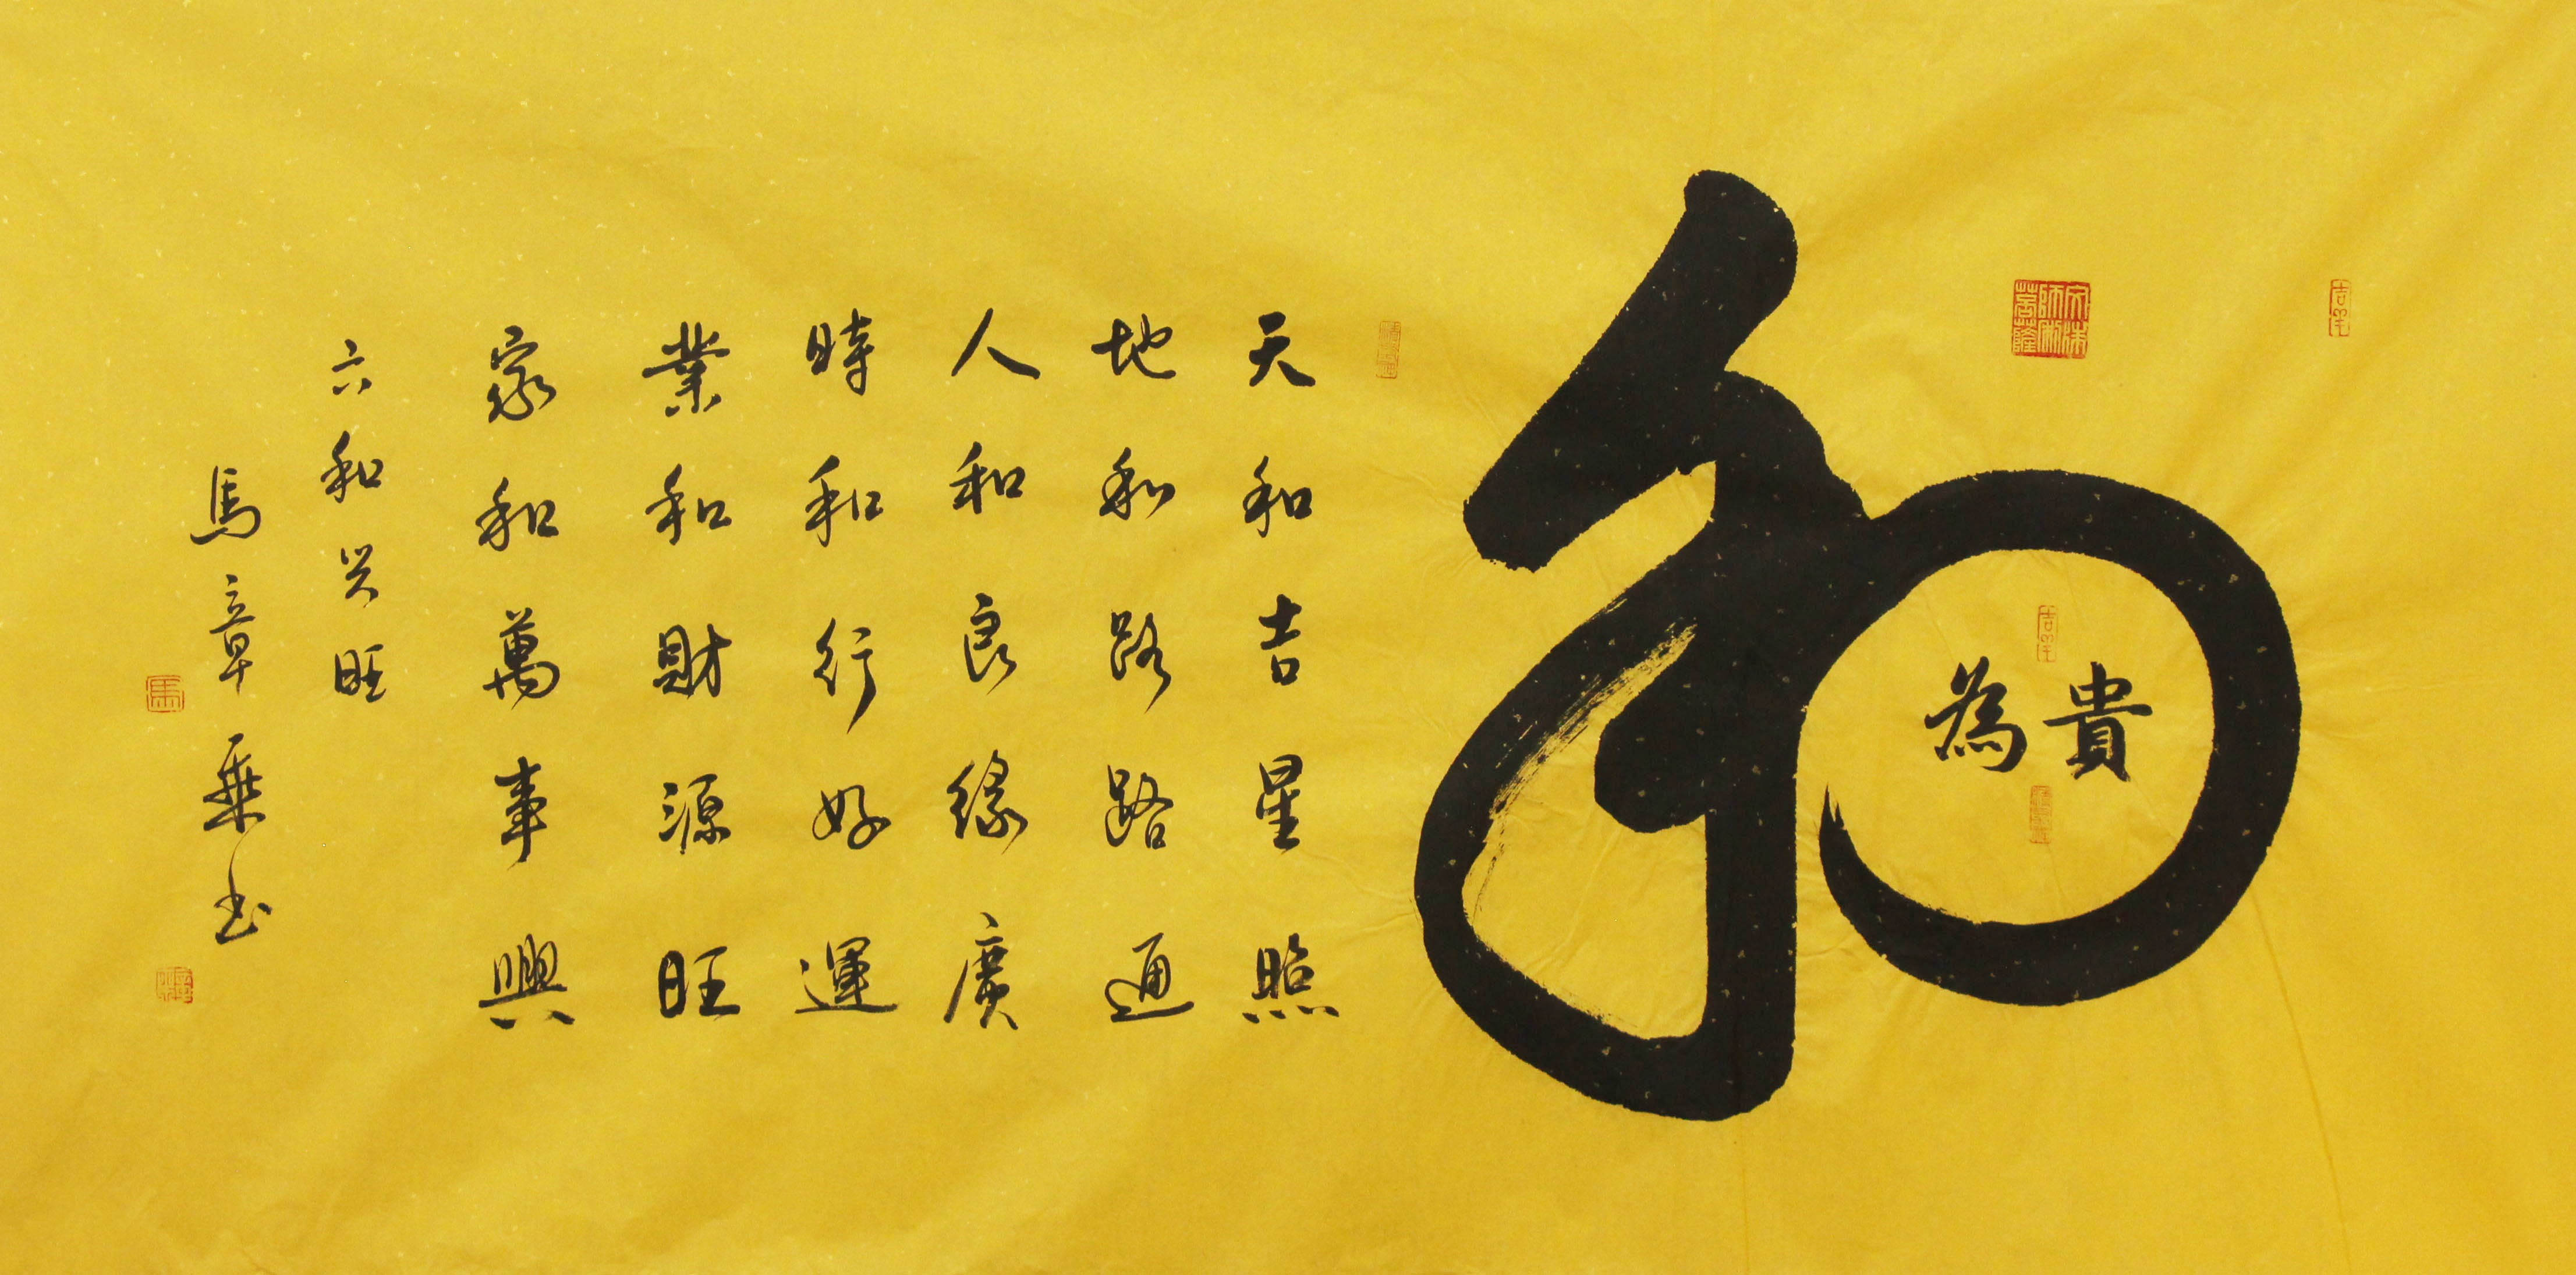 和
為貴
天和吉星照
地和路路通
人和良緣廣
時和行好運
業和財源旺
家和萬事興
六和興旺
馬章乘書
馬